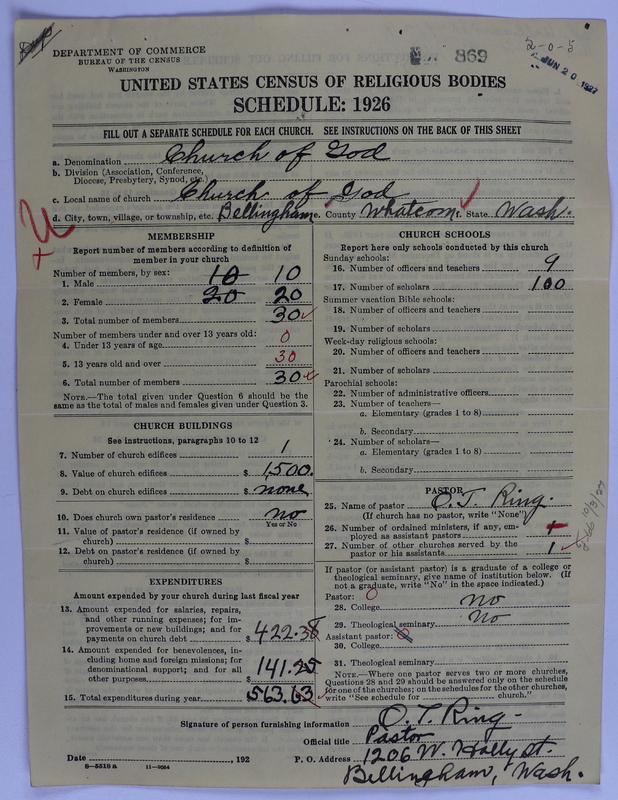 DEPARTMENT OF COMMERCE
BUREAU OF THE CENSUS
WASHINGTON
869
2-0-5
JUN 20 1927
UNITED STATES CENSUS OF RELIGIOUS BODIES
SCHEDULE: 1926
FILL OUT A SEPARATE SCHEDULE FOR EACH CHURCH. SEE INSTRUCTIONS ON THE BACK OF THIS SHEET
a. Denomination Church of God
b. Division (Association, Conference, Diocese, Presbytery, Synod, etc.)
c. Local name of church Church of God
d. City, town, village, or township, etc. Bellingham e. County Whatcom f. State Wash.
MEMBERSHIP
Report number of members according to definition of
member in your church
Number of members, by sex:
1. Male 10 10
2. Female 20 20
3. Total number of members 30
Number of members under and over 13 years old:
4. Under 13 years of age 0
5. 13 years old and over 30
6. Total number of members 30
NOTE.—The total given under Question 6 should be
same as the total of males and females given under Question 3.
CHURCH BUILDINGS
See instructions, paragraphs 10 to 12
7. Number of church edifices 1
8. Value of church edifices $ 1,500.
9. Debt on church edifices $ none
10. Does church own pastor's residence no
Yes or No
11. Value of pastor's residence (if owned by
church) $
12. Debt on pastor's residence (if owned by
church) $
EXPENDITURES
Amount expended by your church during last fiscal year
13. Amount expended for salaries, repairs,
and other running expenses; for im-
provements or new buildings; and for
payments on church debt $ 422.38
14. Amount expended for benevolences, in-
cluding home and foreign missions; for
denominational support; and for all
other purposes $ 141.25
15. Total expenditures during year $ 563.63
CHURCH SCHOOLS
Report here only schools conducted by this church
Sunday schools:
16. Number of officers and teachers 9
17. Number of scholars 100
Summer vacation Bible schools:
18. Number of officers and teachers
19. Number of scholars
Week-day religious schools:
20. Number of officers and teachers
21. Number of scholars
Parochial schools:
22. Number of administrative officers
23. Number of teachers—
a. Elementary (grades 1 to 8)
b. Secondary
24. Number of scholars—
a. Elementary (grades 1 to 8)
b. Secondary
PASTOR
25. Name of pastor O. T. Ring.
(If church has no pastor, write "None")
26. Number of ordained ministers, if any, em-
ployed as assistant pastors 1
27. Number of other churches served by the
pastor or his assistants 1
If pastor (or assistant pastor) is a graduate of a college or
theological seminary, give name of institution below. (If
not a graduate, write "No" in the space indicated.)
Pastor:
28. College no
29. Theological seminary No
Assistant pastor:
30. College
31. Theological seminary
NOTE.—Where one pastor serves two or more churches,
Questions 28 and 29 should be answered only on the schedule
for one of the churches; on the schedules for the other churches,
write "See schedule for church."
Signature of person furnishing information O. T. Ring-
Official title Pastor
Date , 192 P. O. Address 1206 W. Holly st.
8—5518 a 11—9064
Bellingham, Wash.